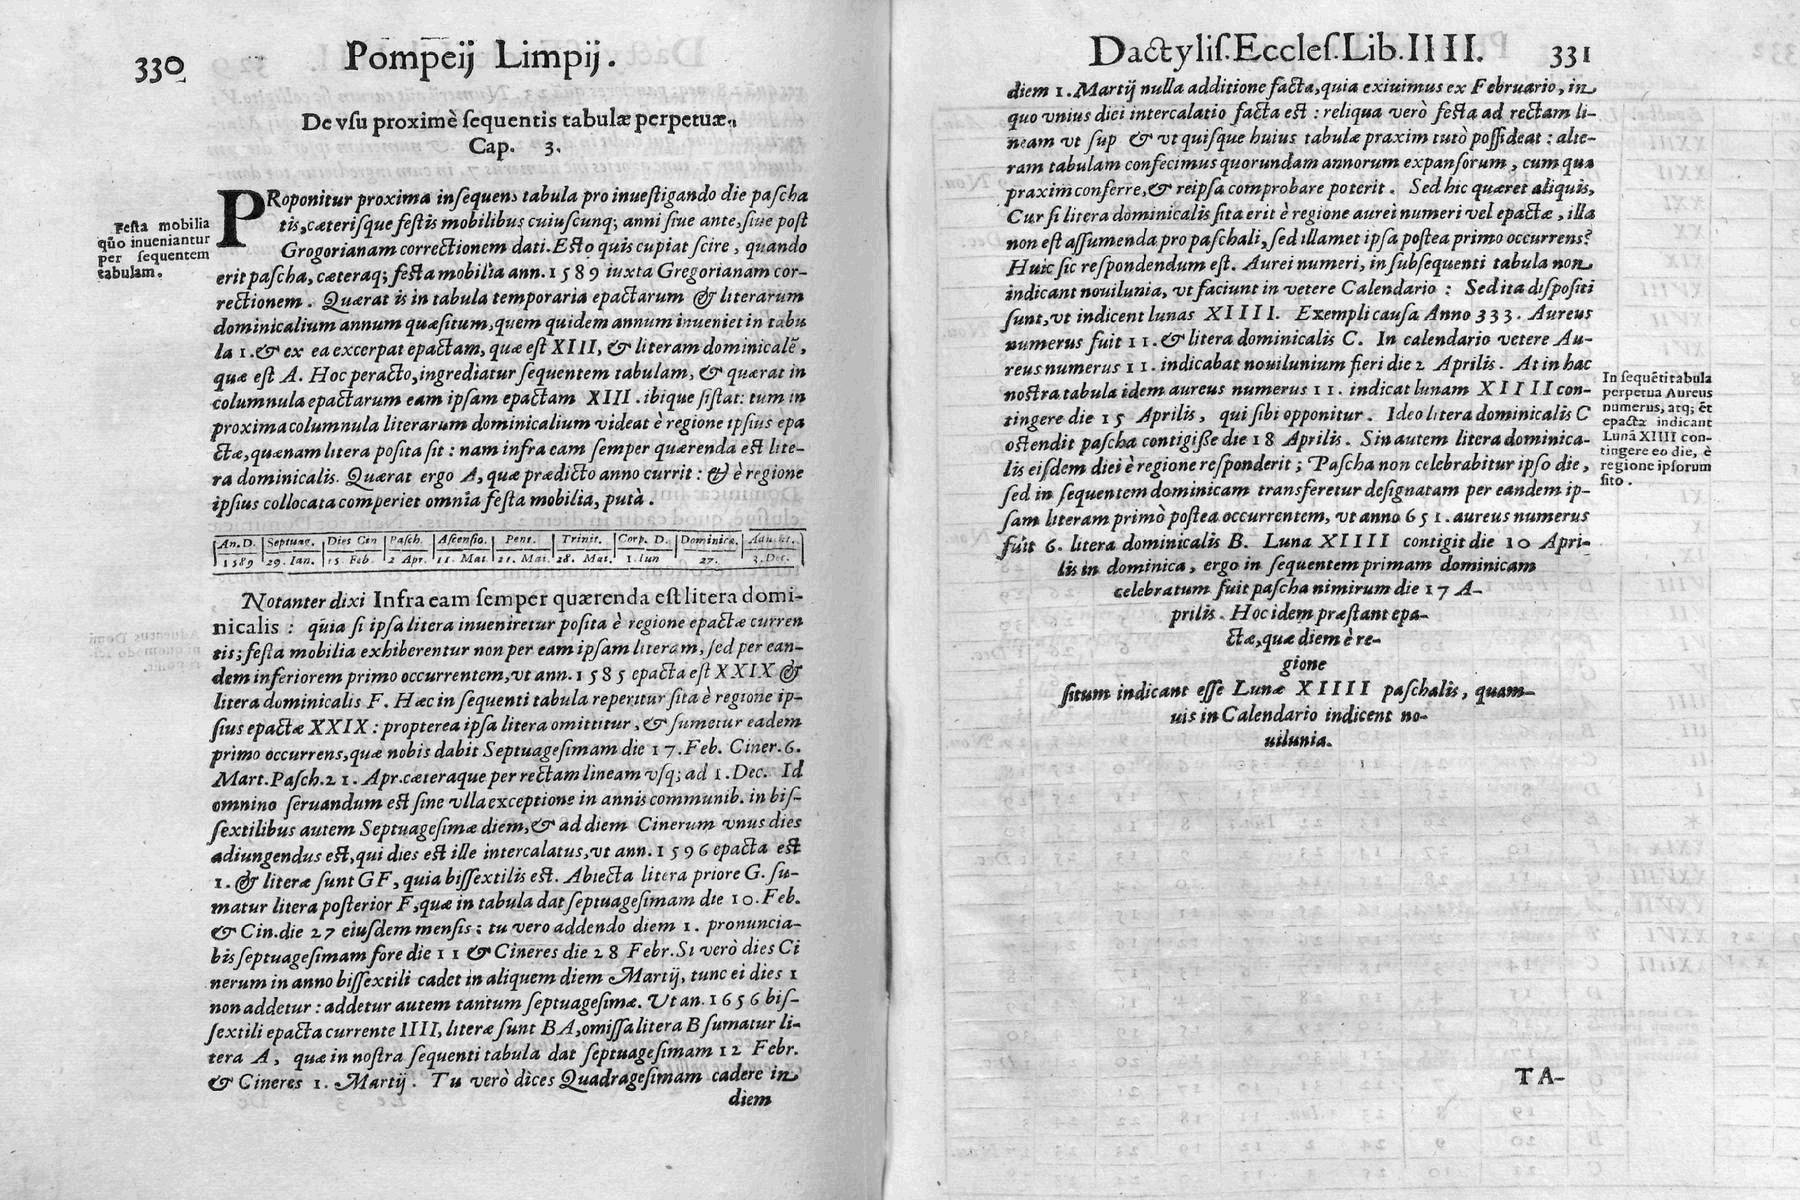 330 Pompeij Limpij.
De vsu proximè sequentis tabulæ perpetuæ.
Cap. 3.
Festa mobilia
qũo inueniantur
per sequentem
tabulam.
PRoponitur proxima insequens tabula pro inuestigando die pascha
tis, cæterisque festis mobilibus cuiuscunq; anni siue ante, siue post
Grogorianam correctionem dati. Esto quis cupiat scire, quando
erit pascha, cæteraq; festa mobilia ann. 1589 iuxta Gregorianam cor-
rectionem. Quærat is in tabula temporaria epactarum & literarum
dominicalium annum quæsitum, quem quidem annum inueniet in tabu
la 1. & ex ea excerpat epactam, quæ est XIII, & literam dominicalẽ,
quæ est A. Hoc peracto, ingrediatur sequentem tabulam, & quærat in
columnula epactarum eam ipsam epactam XIII. ibique sistat: tum in
proxima columnula literarum dominicalium videat è regione ipsius epa
ctæ, quænam litera posita sit: nam infra eam semper quærenda est lite-
ra dominicalis. Quærat ergo A, quæ prædicto anno currit: & è regione
ipsius collocata comperiet omnia festa mobilia, putà.
An. D. Septuag. Dies Cin Pasch. Ascensio. Pent. Trinit. Corp. D. Dominicæ. Aduent.
1589 29. Ian. 15 Feb. 2 Apr. 11. Mai. 21. Mai. 28. Mai. 1. Iun 27. 3. Dec.
Notanter dixi Infra eam semper quærenda est litera domi-
nicalis: quia si ipsa litera inueniretur posita è regione epactæ curren
tis; festa mobilia exhiberentur non per eam ipsam literam, sed per ean-
dem inferiorem primo occurrentem, vt ann. 1585 epacta est XXIX &
litera dominicalis F. Hæc in sequenti tabula reperitur sita è regione ip-
sius epactæ XXIX: propterea ipsa litera omittitur, & sumetur eadem
primo occurrens, quæ nobis dabit Septuagesimam die 17. Feb. Ciner. 6.
Mart. Pasch. 21. Apr. cæteraque per rectam lineam vsq; ad 1. Dec. Id
omnino seruandum est sine vlla exceptione in annis communib. in bis-
sextilibus autem Septuagesimæ diem, & ad diem Cinerum vnus dies
adiungendus est, qui dies est ille intercalatus, vt ann. 1596 epacta est
1. & literæ sunt GF, quia bissextilis est. Abiecta litera priore G. su-
matur litera posterior F, quæ in tabula dat septuagesimam die 10. Feb.
& Cin. die 27 eiusdem mensis; tu vero addendo diem 1. pronuncia-
bis septuagesimam fore die 11 & Cineres die 28 Febr. Si verò dies Ci
nerum in anno bissextili cadet in aliquem diem Martij, tunc ei dies 1
non addetur: addetur autem tantum septuagesimæ. Vt an. 1656 bis-
sextili epacta currente IIII, literæ sunt BA, omissa litera B sumatur li-
tera A, quæ in nostra sequenti tabula dat septuagesimam 12 Febr.
& Cineres 1. Martij. Tu verò dices Quadragesimam cadere in
diem
Dactylis. Eccles. Lib. IIII. 331
diem 1. Martij nulla additione facta, quia exiuimus ex Februario, in
quo vnius diei intercalatio facta est: reliqua verò festa ad rectam li-
neam vt sup & vt quisque huius tabulæ praxim tutò possideat: alte-
ram tabulam confecimus quorundam annorum expansorum, cum qua
praxim conferre, & reipsa comprobare poterit. Sed hic quæret aliquis,
Cur si litera dominicalis sita erit è regione aurei numeri vel epactæ, illa
non est assumenda pro paschali, sed illamet ipsa postea primo occurrens?
Huic sic respondendum est. Aurei numeri, in subsequenti tabula non
indicant nouilunia, vt faciunt in vetere Calendario: Sed ita dispositi
sunt, vt indicent lunas XIIII. Exempli causa Anno 333. Aureus
numerus fuit 11. & litera dominicalis C. In calendario vetere Au-
reus numerus 11. indicabat nouilunium fieri die 2 Aprilis. At in hac
nostra tabula idem aureus numerus 11. indicat lunam XIIII con-
tingere die 15 Aprilis, qui sibi opponitur. Ideo litera dominicalis C
ostendit pascha contigisse die 18 Aprilis. Sin autem litera dominica-
lis eisdem diei è regione responderit; Pascha non celebrabitur ipso die,
sed in sequentem dominicam transferetur designatam per eandem ip-
sam literam primò postea occurrentem, vt anno 651. aureus numerus
fuit 6. litera dominicalis B. Luna XIIII contigit die 10 Apri-
lis in dominica, ergo in sequentem primam dominicam
celebratum fuit pascha nimirum die 17 A-
prilis. Hoc idem præstant epa-
ctæ, quæ diem è re-
gione
situm indicant esse Lunæ XIIII paschalis, quam-
uis in Calendario indicent no-
uilunia.
In sequẽti tabula
perpetua Aureus
numerus, atq; ẽt
epacta indicant
Lunã XIIII con-
tingere eo die, è
regione ipsorum
sito.
TA-